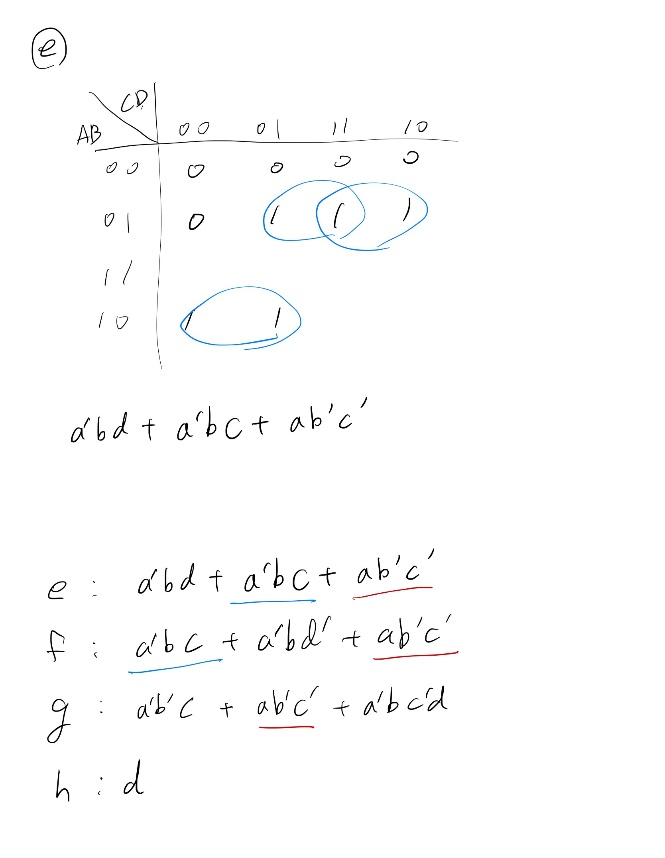 e
CD
AB 00 01 11 10
00 0 0 0 0
01 0 1 1 1
11
10 1 1
a'bd + a'bc + ab'c'
e : a'bd + a'bc + ab'c'
f : a'bc + a'bd' + ab'c'
g : a'b'c + ab'c' + a'bc'd
h : d